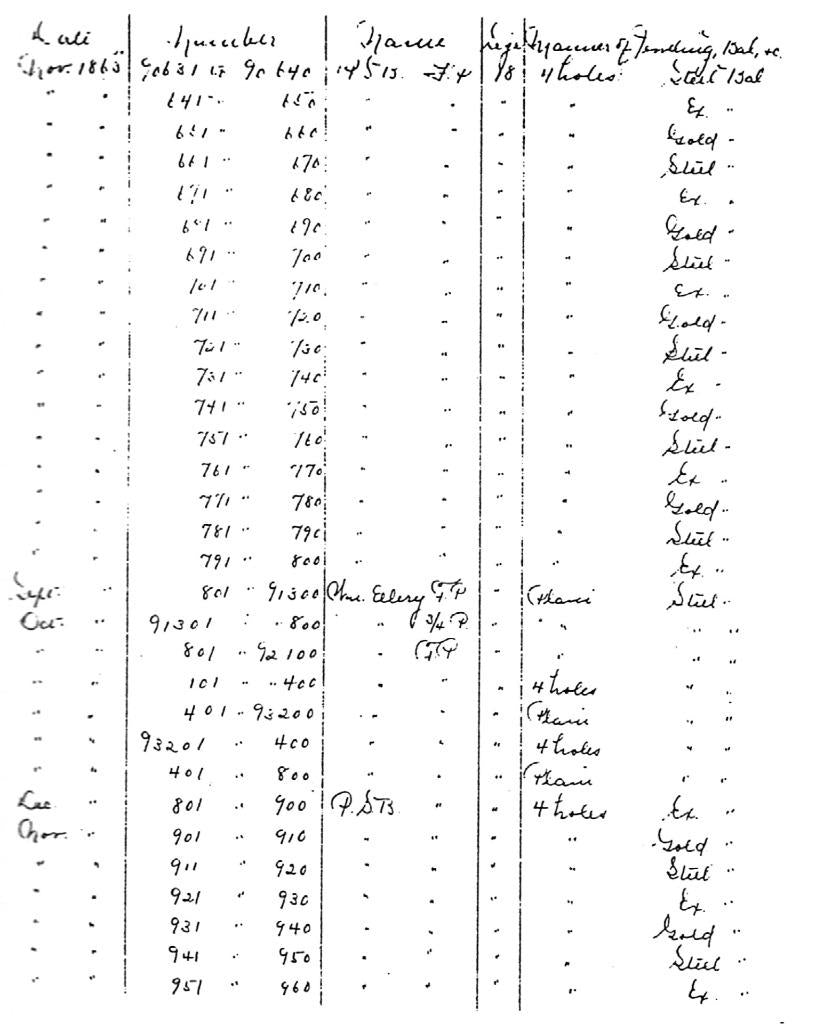 Date Number Name Size Manner of Finishing, Bal, &c.
Nov. 1863 90631 to 90640 P.S.B. F.P. 18 4 holes Steel Bal
" " 641 " 650 " " " " Ex. "
" " 651 " 660 " " " " Gold "
" " 661 " 670 " " " " Steel "
" " 671 " 680 " " " " Ex. "
" " 681 " 690 " " " " Gold "
" " 691 " 700 " " " " Steel "
" " 701 " 710 " " " " Ex. "
" " 711 " 720 " " " " Gold "
" " 721 " 730 " " " " Steel "
" " 731 " 740 " " " " Ex "
" " 741 " 750 " " " " Gold "
" " 751 " 760 " " " " Steel "
" " 761 " 770 " " " " Ex "
" " 771 " 780 " " " " Gold "
" " 781 " 790 " " " " Steel "
" " 791 " 800 " " " " Ex. "
Sept. " 801 " 91300 Wm. Ellery F.P " Plain Steel "
Oct. " 91301 " " 800 " 3/4 P. " " " " "
" " 801 " 92100 " F.P " " " "
" " 101 " " 400 " " " 4 holes " "
" " 401 " 93200 " " " Plain " "
" " 93201 " 400 " " " 4 holes " "
" " 401 " 800 " " " Plain " "
Dec. " 801 " 900 P.S.B. " " 4 holes Ex. "
Nov. " 901 " 910 " " " " Gold "
" " 911 " 920 " " " " Steel "
" " 921 " 930 " " " " Ex. "
" " 931 " 940 " " " " Gold "
" " 941 " 950 " " " " Steel "
" " 951 " 960 " " " " Ex. "